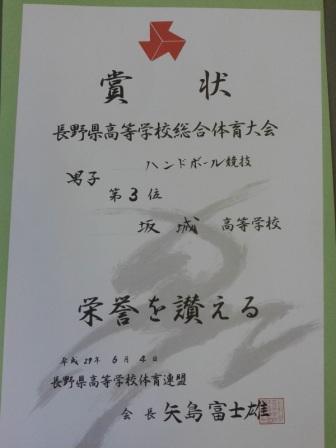 賞状
長野県高等学校総合体育大会
ハンドボール競技
男子
第3位
坂城 高等学校
栄誉を讃える
平成29年6月4日
長野県高等学校体育連盟
会長 矢島富士雄